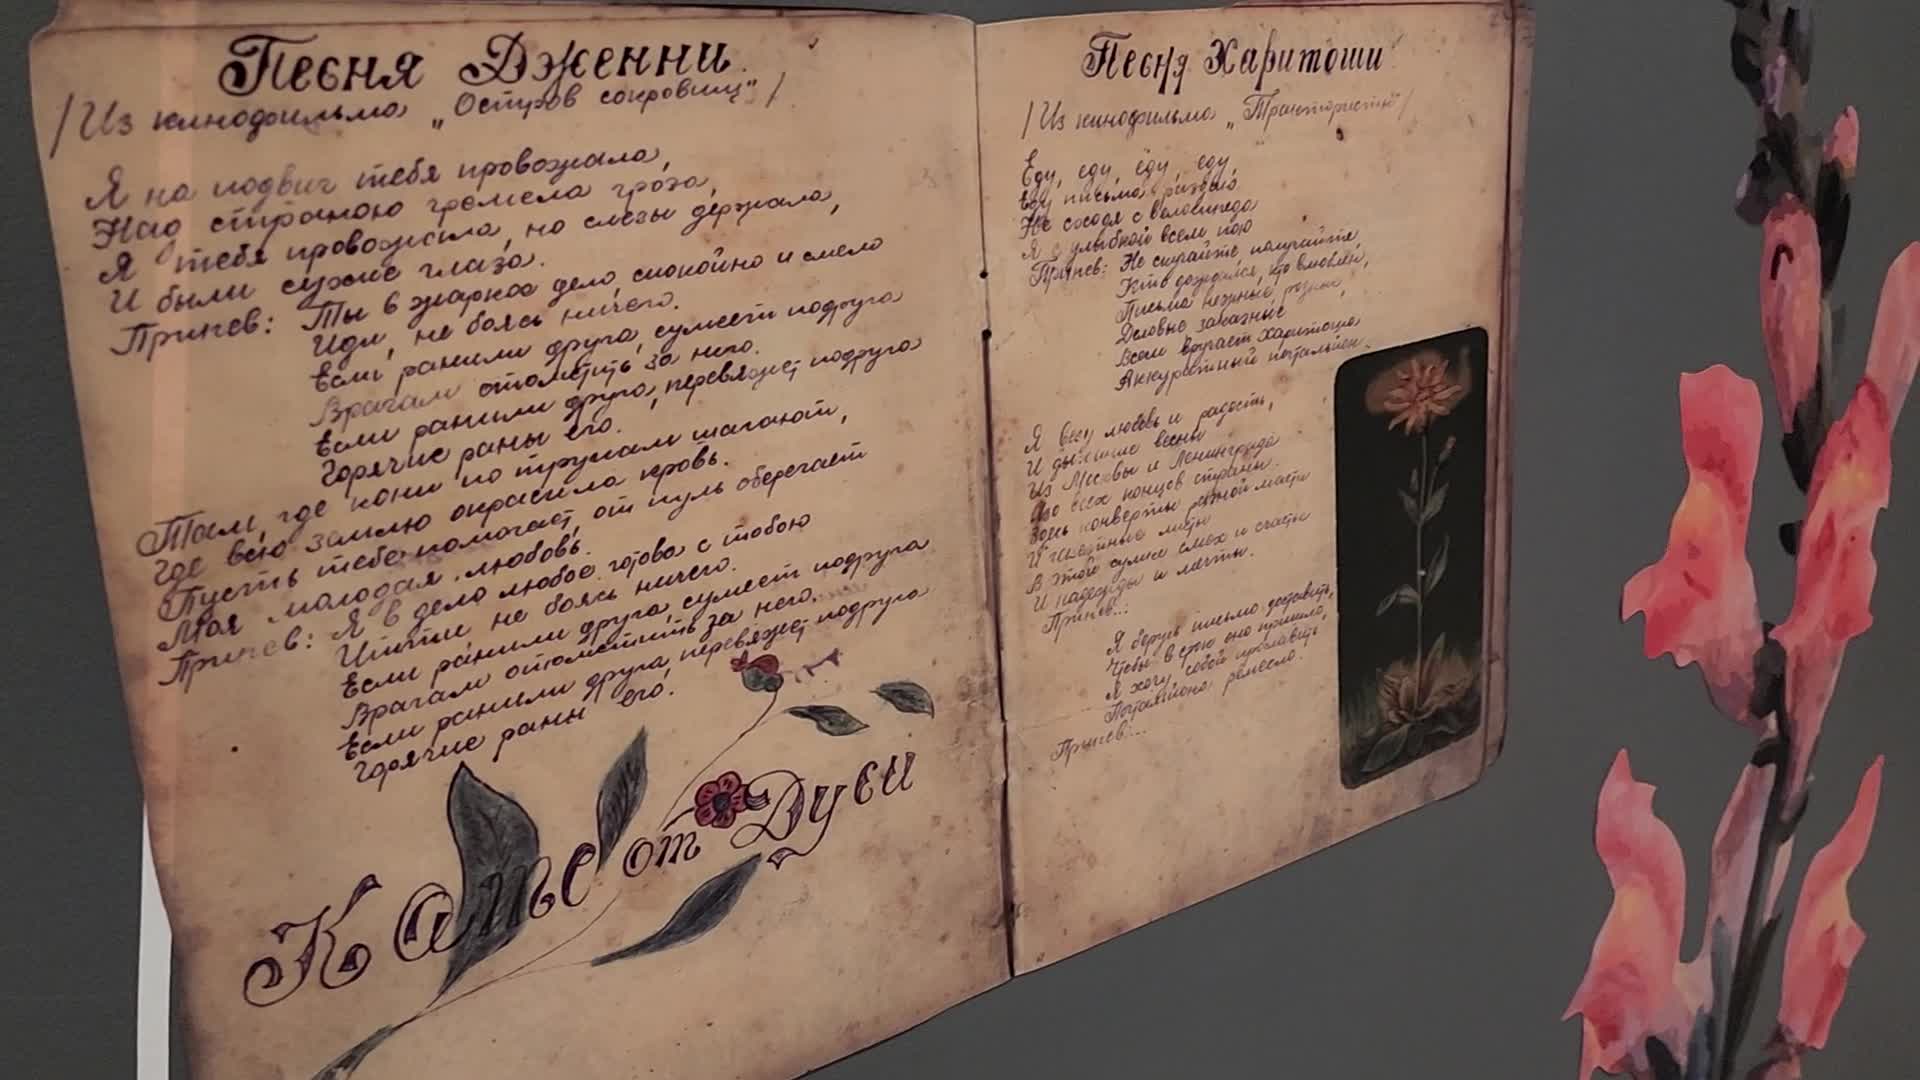 Песня Дженни
/Из кинофильма „Остров сокровищ"/
Я на подвиг тебя провожала,
Над страною гремела гроза,
Я тебя провожала, но слезы держала,
И были сухие глаза.
Припев: Ты в жаркое дело, спокойно и смело
Иди, не боясь ничего.
Если ранили друга, сумеет подруга
Врагам отомстить за него.
Если ранили друга, перевяжет подруга
Горячие раны его.
Там, где кони по трупам шагают,
Где всю землю окрасила кровь.
Пусть тебе помогает, от пуль оберегает
Моя молодая любовь.
Припев: Я в дело любое готова с тобою
Идти не боясь ничего.
Если ранили друга, сумеет подруга
Врагам отомстить за него.
Если ранили друга, перевяжет подруга
Горячие раны его.
Кате от Дуси
Песня Харитоши
/Из кинофильма „Трактористы"/
Еду, еду, еду, еду,
Еду письма раздаю
Не сходя с велосипеда
Я с улыбкой всем пою
Припев: Не скучайте получайте
Кто дождался, кто влюблен,
Письма нежные, разные,
Деловые заказные
Всем вручает Харитоша
Аккуратный почтальон.
Я везу любовь и радость,
И дыхание весны
Из Москвы и Ленинграда
Со всех концов страны.
Здесь конверты разной масти
И листы
В этой сумке смех и счастье
И надежды и мечты.
Припев:..
Я берусь письмо доставить,
Чтобы в срок оно пришло,
Я хочу собой прославить
Почтальона ремесло.
Припев:...